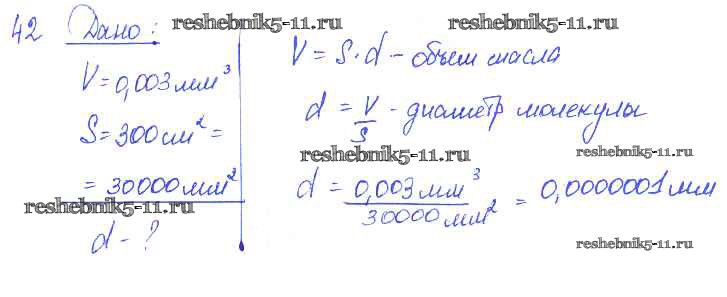 42 Дано:
V = 0,003 мм³
S = 300 см² =
= 30000 мм²
d - ?
V = S · d - объем масла
d = V/S - диаметр молекулы
d = 0,003 мм³ / 30000 мм² = 0,0000001 мм
reshebnik5-11.ru
reshebnik5-11.ru
reshebnik5-11.ru
reshebnik5-11.ru
reshebnik5-11.ru
reshebnik5-11.ru